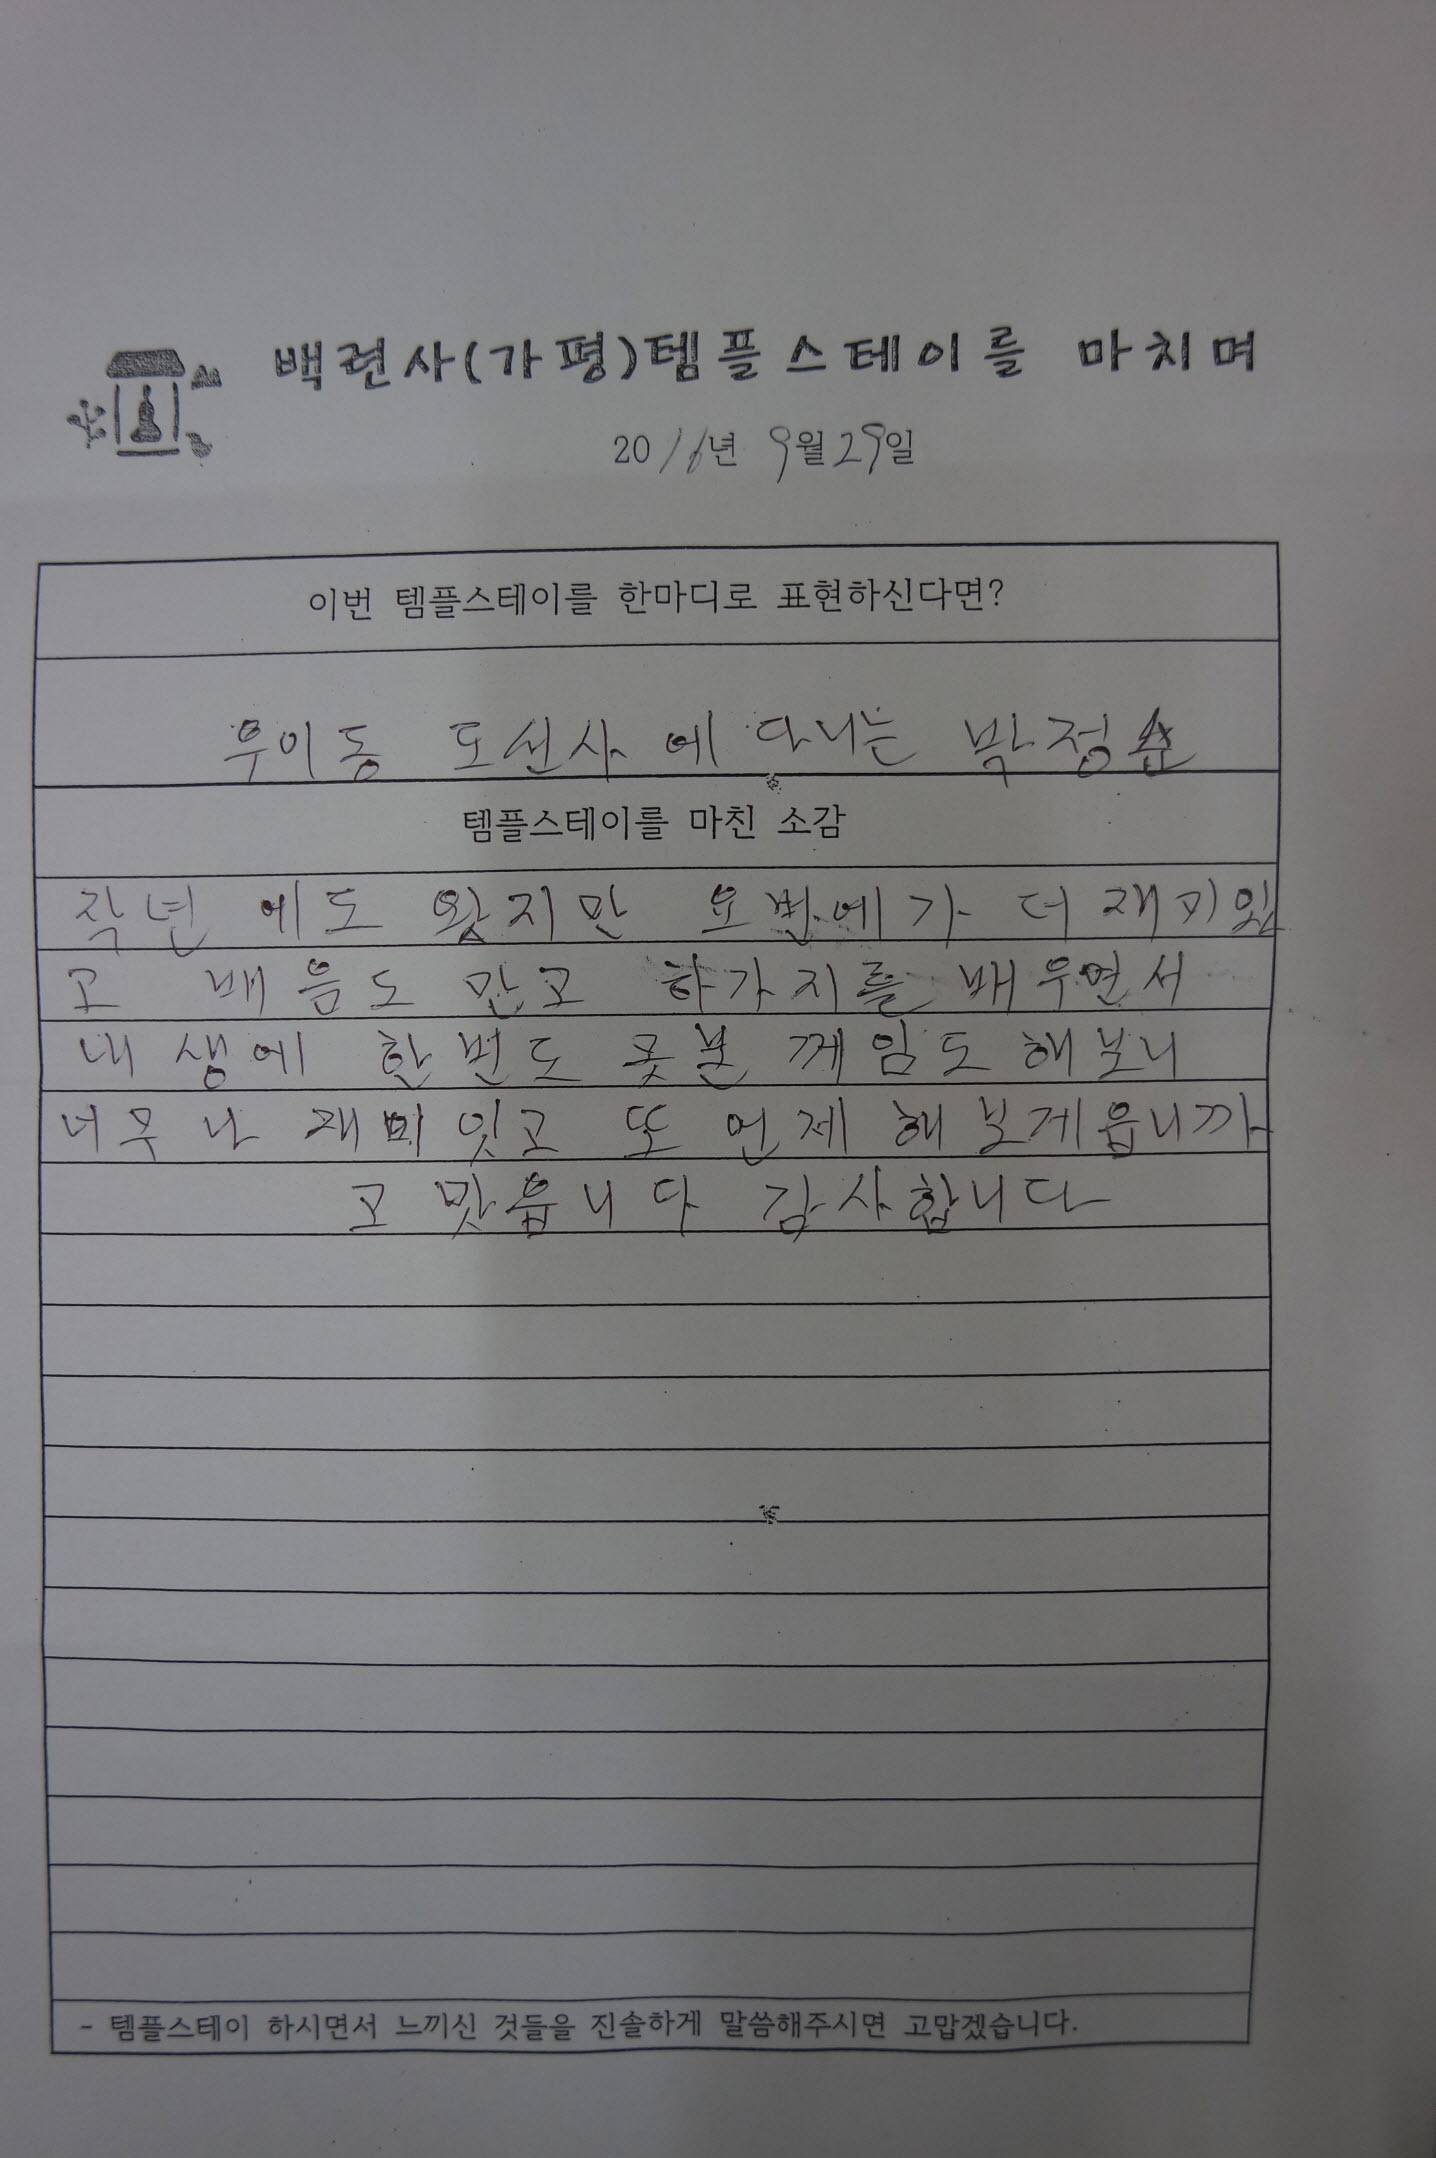 백련사(가평)템플스테이를 마치며
2016년 9월 29일
이번 템플스테이를 한마디로 표현하신다면?
우이동 도선사 에 다니는 박정순
템플스테이를 마친 소감
작년 에도 왔지만 요번에가 더 재미있
고 배음도 만고 하가지를 배우면서
내 생에 한번도 못본 께임도 해보니
너무나 재미잇고 또 언제 해보게읍니까
고맛읍니다 감사합니다
- 템플스테이 하시면서 느끼신 것들을 진솔하게 말씀해주시면 고맙겠습니다.